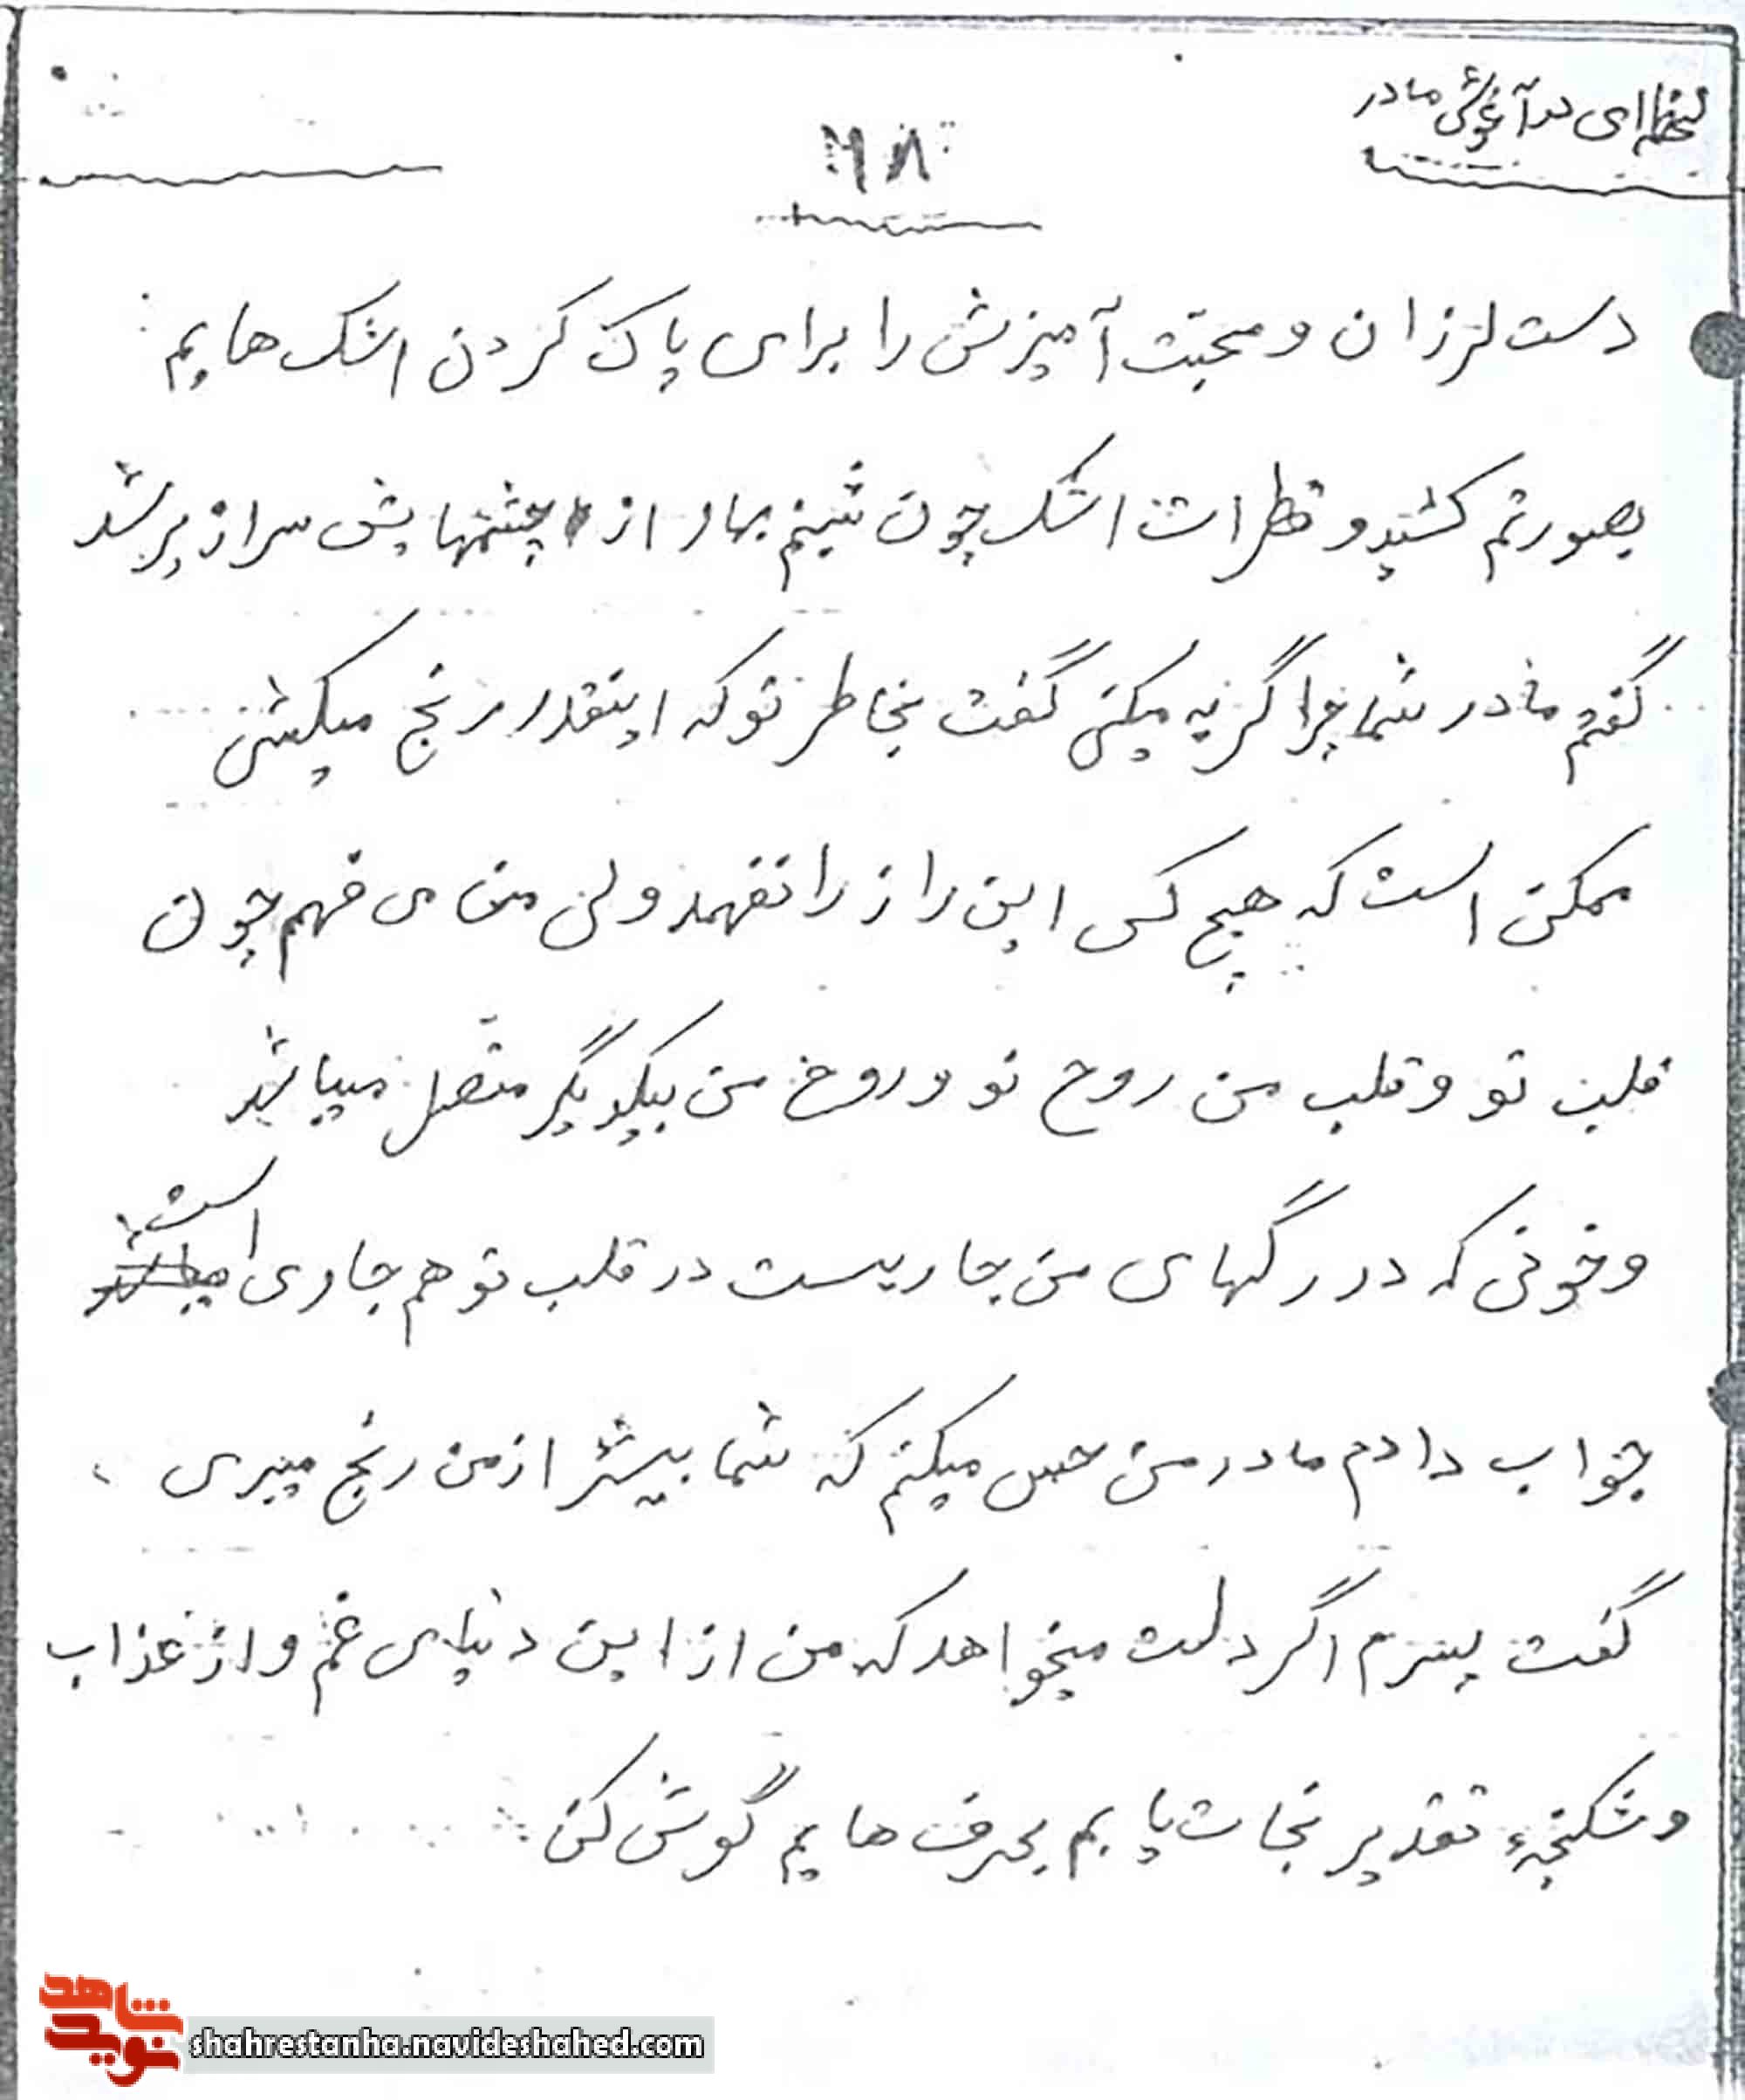 لحظه ای در آغوش مادر
۲۸
دست لرزان و محبت آمیزش را برای پاک کردن اشک هایم
بصورتم کشید و قطرات اشک چون شبنم بهار از چشمهایش سرازیر شد
گفتم مادر شما چرا گریه میکنی گفت بخاطر تو که اینقدر رنج میکشی
ممکن است که هیچ کس این راز را نفهمد ولی من می فهم چون
قلب تو و قلب من روح تو و روح من بیکدیگر متصل میباشد
و خونی که در رگهای من جاریست در قلب تو هم جاری است
جواب دادم مادر من حس میکنم که شما بیشتر از من رنج میبری ،
گفت پسرم اگر دلت میخواهد که من از این دنیای غم و از عذاب
و شکنجهٔ تقدیر نجات یابم بحرف هایم گوش کن
شاهد
نوید
shahrestanha.navideshahed.com